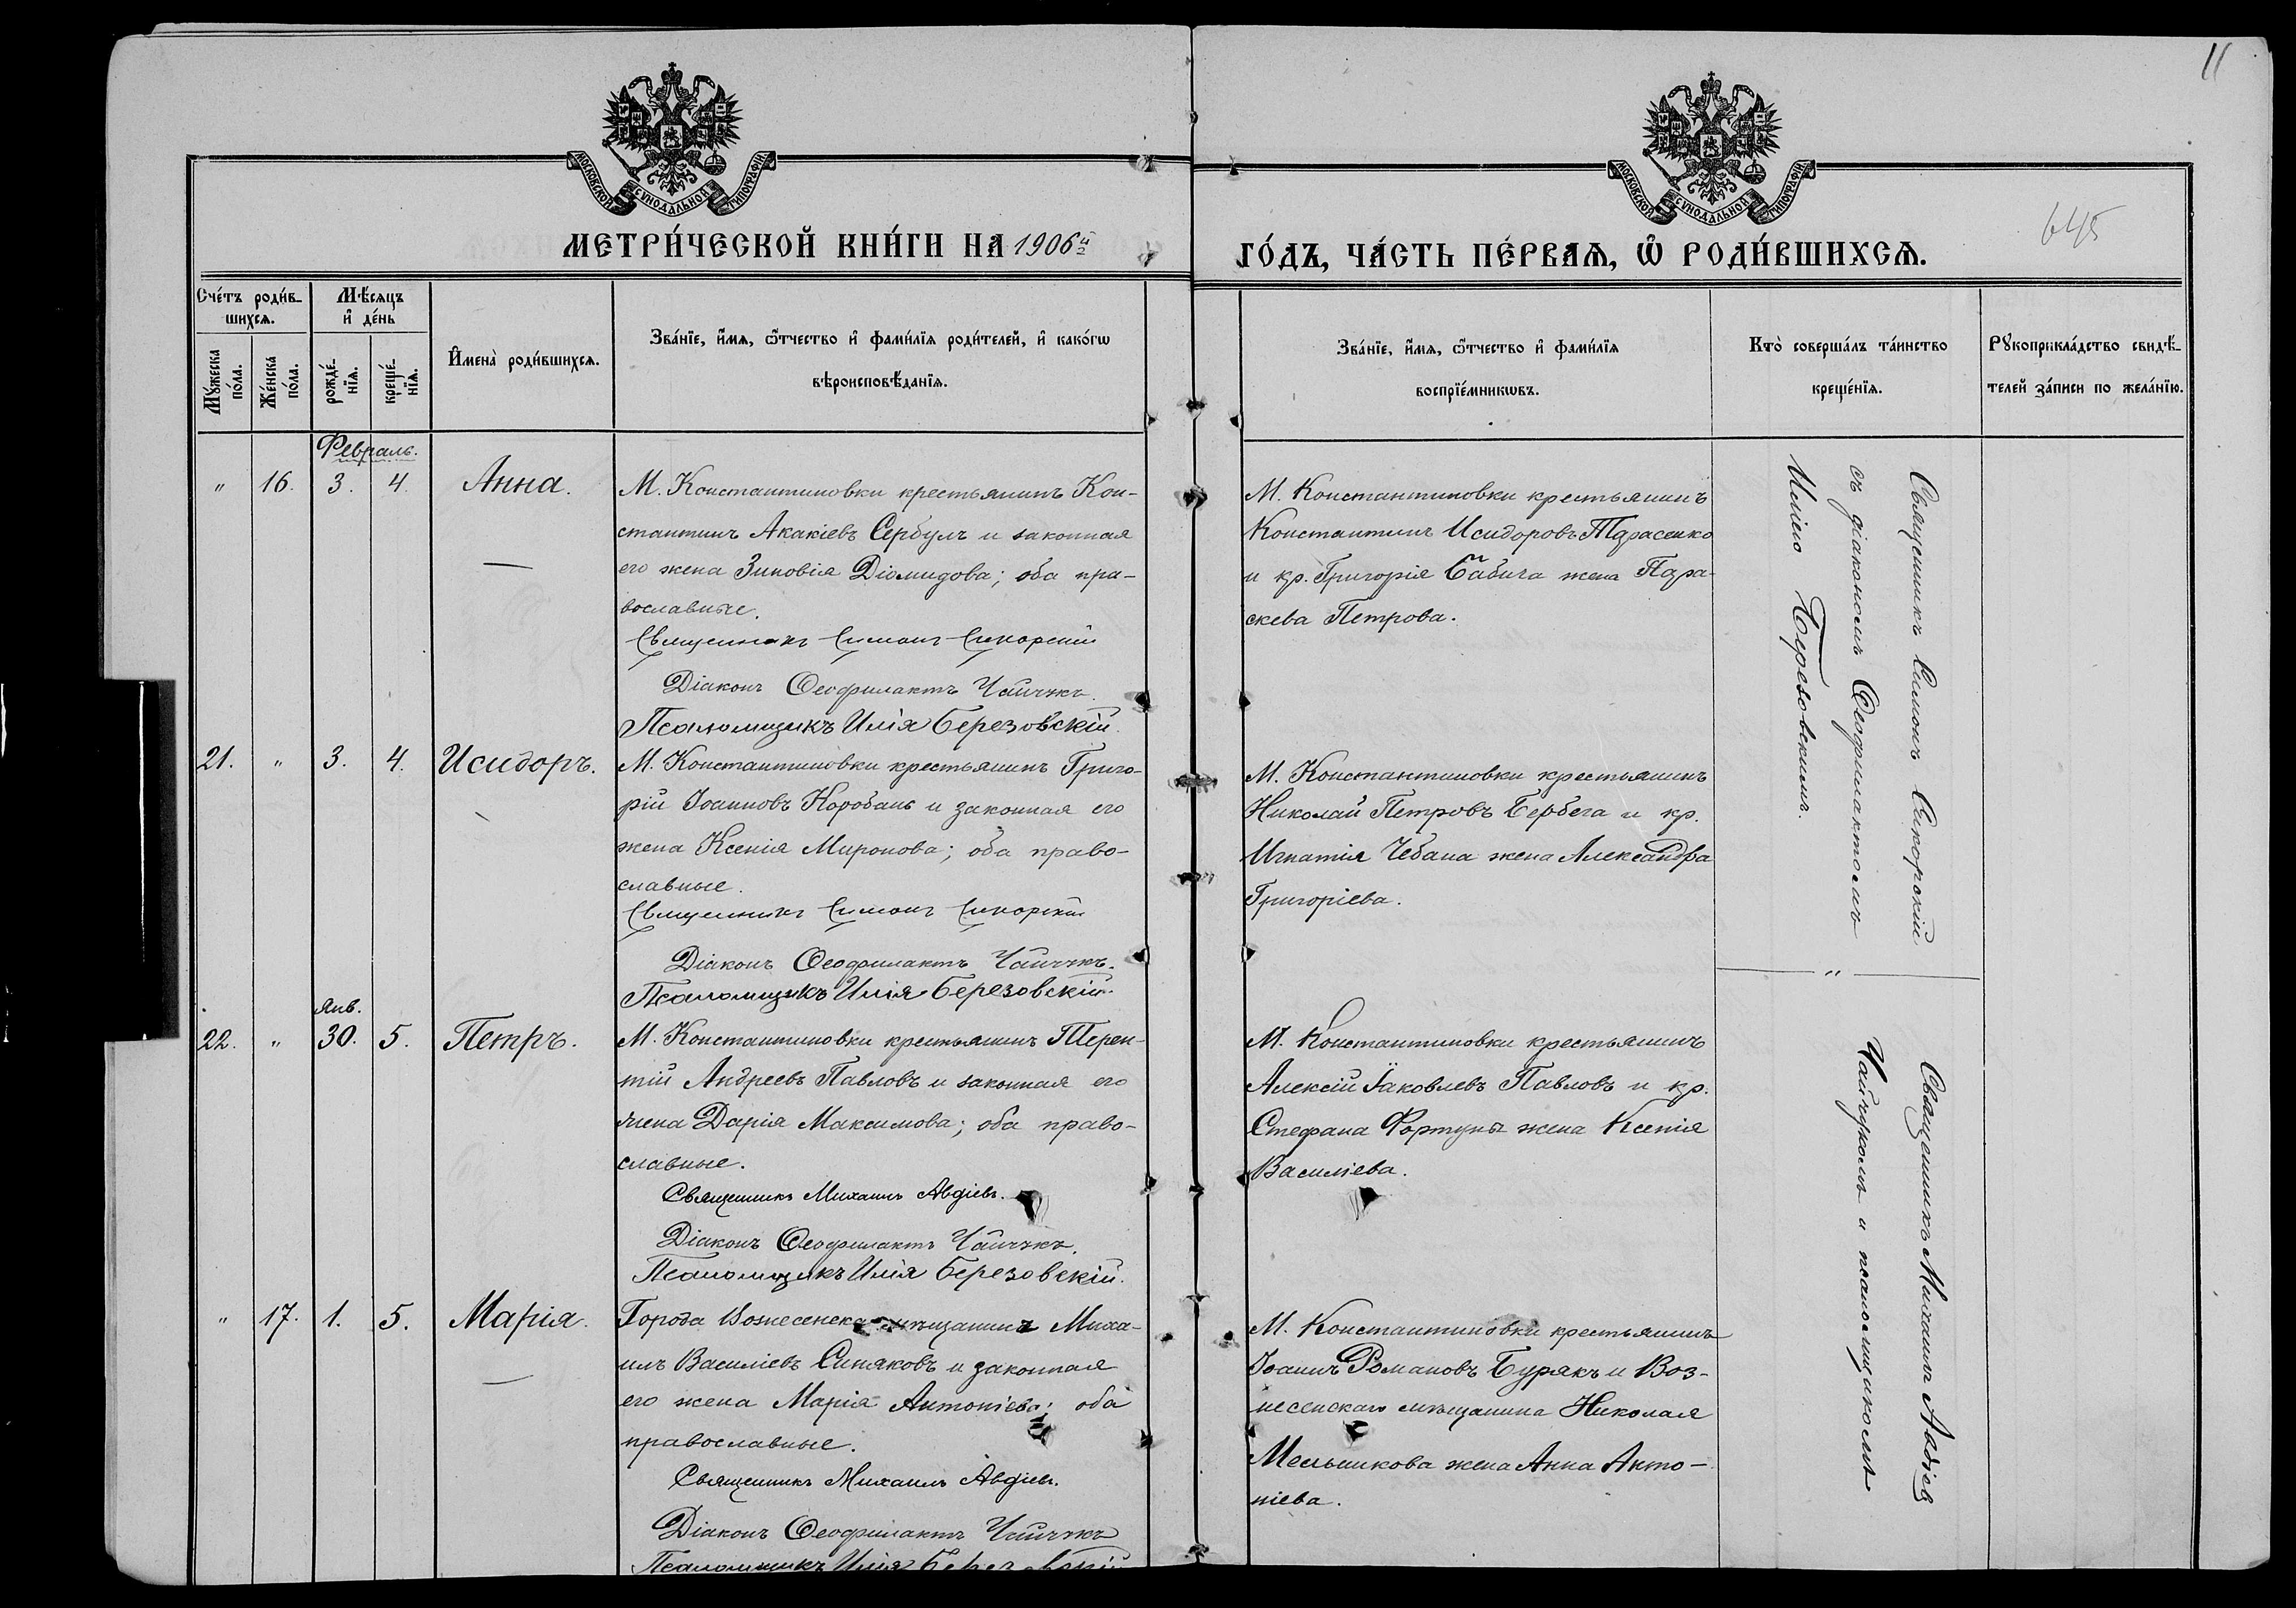 11
645
МОСКОВСКОЙ СѴНОДАЛЬНОЙ ТИПОГРАФІИ
МОСКОВСКОЙ СѴНОДАЛЬНОЙ ТИПОГРАФІИ
МЕТРИ́ЧЕСКОЙ КНИ́ГИ НА 1906й
ГО́ДЪ, ЧА́СТЬ ПЕ́РВАѦ, Ѡ҆ РОДИ́ВШИХСѦ.
Сче́тъ роди́в-
шихсѧ.
Мѣ́сѧцъ
и҆ де́нь
Мꙋ́жеска
по́ла.
Же́нска
по́ла.
рожде́-
нїѧ.
креще́-
нїѧ.
И҆мена̀ роди́вшихсѧ.
Зва́нїе, и҆́мѧ, ѻ҆́тчество и҆ фами́лїѧ роди́телей, и҆ како́гѡ
вѣроисповѣ́данїѧ.
Зва́нїе, и҆́мѧ, ѻ҆́тчество и҆ фами́лїѧ
воспрїе́мникѡвъ.
Кто̀ соверша́лъ та́инство
креще́нїѧ.
Рꙋкоприкла́дство свидѣ́-
телей за́писи по жела́нїю.
Февраль.
" 16. 3. 4. Анна.
М. Константиновки крестьянинъ Кон-
стантинъ Акакіевъ Сербулъ и законная
его жена Зиновія Діомидова; оба пра-
вославные.
Священникъ Симонъ Сикорскій
Діаконъ Ѳеофилактъ Чайчукъ.
Псаломщикъ Илія Березовскій.
М. Константиновки крестьянинъ
Константинъ Исидоровъ Тарасенко
и кр. Григорія Бабича жена Пара-
скева Петрова.
Священникъ Симонъ Сикорскій
съ діакономъ Ѳеофилактомъ
Иліею Березовскимъ.
21. " 3. 4. Исидоръ.
М. Константиновки крестьянинъ Григо-
рій Іоанновъ Коробань и законная его
жена Ксенія Миронова; оба право-
славные.
Священникъ Симонъ Сикорскій
Діаконъ Ѳеофилактъ Чайчукъ.
Псаломщикъ Илія Березовскій.
М. Константиновки крестьянинъ
Николай Петровъ Бербега и кр.
Игнатія Чебана жена Александра
Григоріева.
"
Янв.
22. " 30. 5. Петръ.
М. Константиновки крестьянинъ Терен-
тій Андреевъ Павловъ и законная его
жена Дарія Максимова; оба право-
славные.
Священникъ Михаилъ Авдіевъ.
Діаконъ Ѳеофилактъ Чайчукъ.
Псаломщикъ Илія Березовскій.
М. Константиновки крестьянинъ
Алексій Іаковлевъ Павловъ и кр.
Стефана Фортуны жена Ксенія
Василіева.
Священникъ Михаилъ Авдіевъ
Чайчукомъ и псаломщикомъ
" 17. 1. 5. Марія.
Города Вознесенска мѣщанинъ Миха-
илъ Василіевъ Синяковъ и законная
его жена Марія Антоніева; оба
православные.
Священникъ Михаилъ Авдіевъ.
Діаконъ Ѳеофилактъ Чайчукъ
Псаломщикъ Илія Березовскій
М. Константиновки крестьянинъ
Іоаннъ Романовъ Бурякъ и Воз-
несенскаго мѣщанина Николая
Мельникова жена Анна Анто-
ніева.